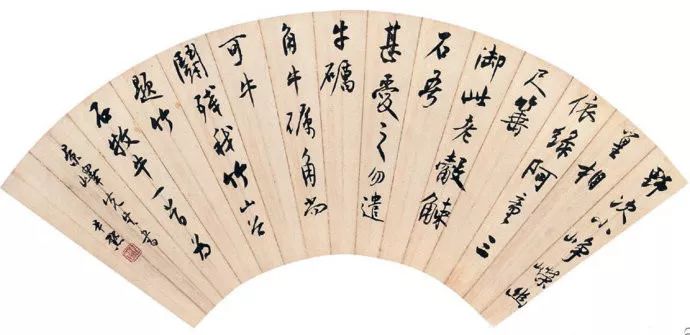 野次小崢嶸幽
篁相
依綠阿童三
尺箠
御此老觳觫
石吾
甚愛之勿遣
牛礪
角牛礪角尚
可牛
鬬殘我竹山谷
題竹
石牧牛一首為
尹默